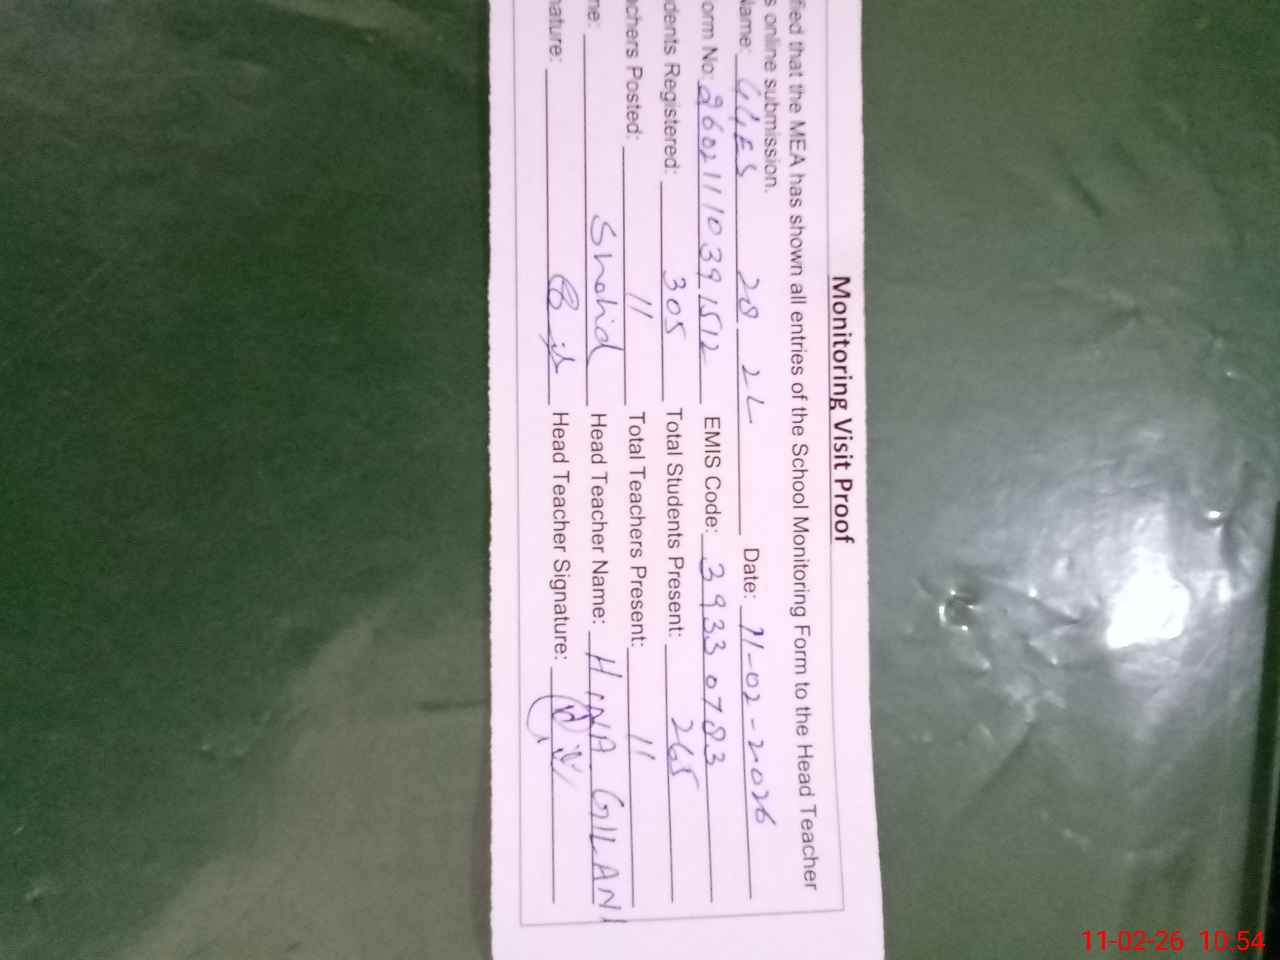 Monitoring Visit Proof
fied that the MEA has shown all entries of the School Monitoring Form to the Head Teacher
s online submission.
Name: GGES 28 2L Date: 11-02-2026
orm No: 26021110391512 EMIS Code: 39330783
dents Registered: 305 Total Students Present: 265
achers Posted: 11 Total Teachers Present: 11
me: Shahid Head Teacher Name: HINA GILANI
nature: Head Teacher Signature:
11-02-26 10:54